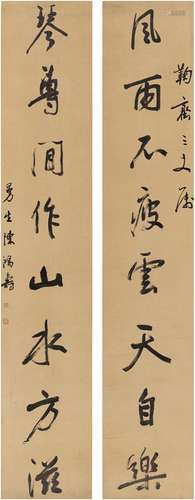 風雨不疲雲天自樂
鞠齋三丈屬
琴尊間作山水方滋
曼生陳鴻壽